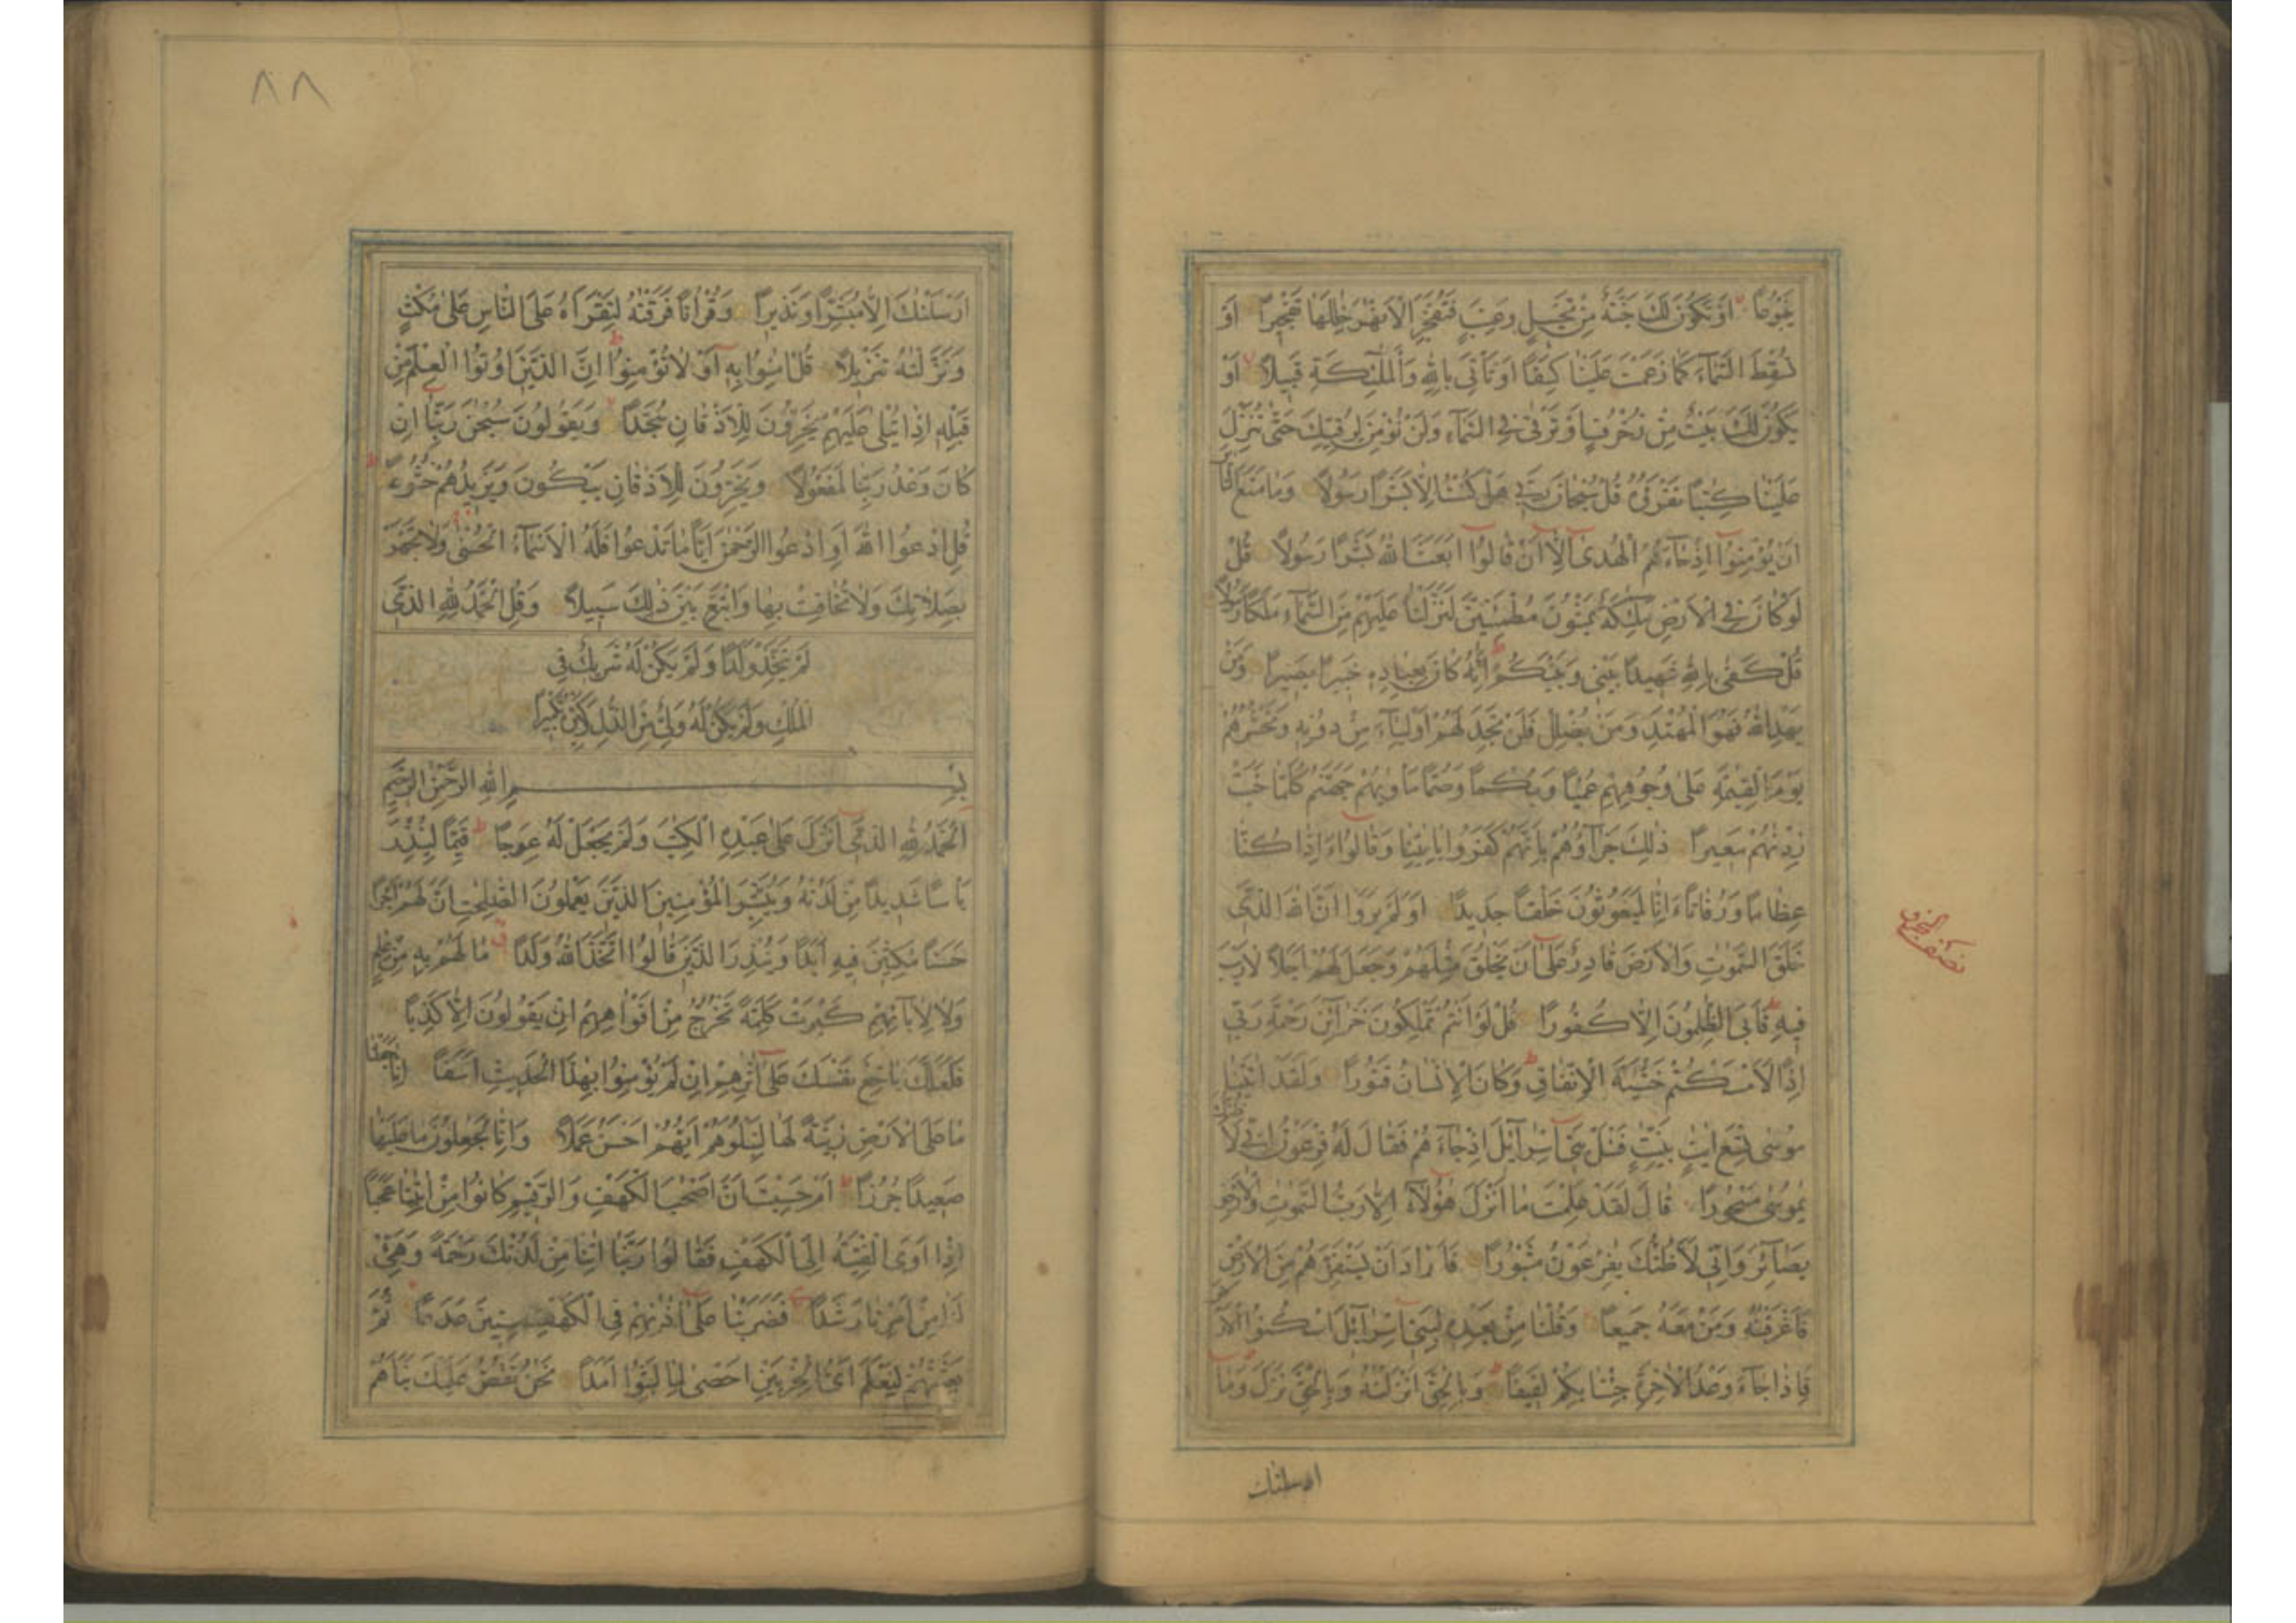 يَنْبُوعًا اَوْ تَكُونَ لَكَ جَنَّةٌ مِنْ نَخٖيلٍ وَعِنَبٍ فَتُفَجِّرَ الْاَنْهٰرَ خِلٰلَهَا تَفْجٖيرًا اَوْ
تُسْقِطَ السَّمَٓاءَ كَمَا زَعَمْتَ عَلَيْنَا كِسَفًا اَوْ تَاْتِيَ بِاللّٰهِ وَالْمَلٰٓئِكَةِ قَبٖيلًا اَوْ
يَكُونَ لَكَ بَيْتٌ مِنْ زُخْرُفٍ اَوْ تَرْقٰى فِي السَّمَٓاءِ وَلَنْ نُؤْمِنَ لِرُقِيِّكَ حَتّٰى تُنَزِّلَ
عَلَيْنَا كِتٰبًا نَقْرَؤُهُ قُلْ سُبْحَانَ رَبّٖي هَلْ كُنْتُ اِلَّا بَشَرًا رَسُولًا وَمَا مَنَعَ النَّاسَ
اَنْ يُؤْمِنُٓوا اِذْ جَٓاءَهُمُ الْهُدٰىٓ اِلَّٓا اَنْ قَالُٓوا اَبَعَثَ اللّٰهُ بَشَرًا رَسُولًا قُلْ
لَوْ كَانَ فِي الْاَرْضِ مَلٰٓئِكَةٌ يَمْشُونَ مُطْمَئِنّٖينَ لَنَزَّلْنَا عَلَيْهِمْ مِنَ السَّمَٓاءِ مَلَكًا رَسُولًا
قُلْ كَفٰى بِاللّٰهِ شَهٖيدًا بَيْنٖي وَبَيْنَكُمْ اِنَّهُ كَانَ بِعِبَادِهٖ خَبٖيرًا بَصٖيرًا وَمَنْ
يَهْدِ اللّٰهُ فَهُوَ الْمُهْتَدِ وَمَنْ يُضْلِلْ فَلَنْ تَجِدَ لَهُمْ اَوْلِيَٓاءَ مِنْ دُونِهٖ وَنَحْشُرُهُمْ
يَوْمَ الْقِيٰمَةِ عَلٰى وُجُوهِهِمْ عُمْيًا وَبُكْمًا وَصُمًّا مَاْوٰيهُمْ جَهَنَّمُ كُلَّمَا خَبَتْ
زِدْنٰهُمْ سَعٖيرًا ذٰلِكَ جَزَٓاؤُهُمْ بِاَنَّهُمْ كَفَرُوا بِاٰيٰتِنَا وَقَالُٓوا ءَاِذَا كُنَّا
عِظَامًا وَرُفَاتًا ءَاِنَّا لَمَبْعُوثُونَ خَلْقًا جَدٖيدًا اَوَلَمْ يَرَوْا اَنَّ اللّٰهَ الَّذٖي
خَلَقَ السَّمٰوٰتِ وَالْاَرْضَ قَادِرٌ عَلٰٓى اَنْ يَخْلُقَ مِثْلَهُمْ وَجَعَلَ لَهُمْ اَجَلًا لَا رَيْبَ
فٖيهِ فَاَبَى الظّٰلِمُونَ اِلَّا كُفُورًا قُلْ لَوْ اَنْتُمْ تَمْلِكُونَ خَزَٓائِنَ رَحْمَةِ رَبّٖي
اِذًا لَاَمْسَكْتُمْ خَشْيَةَ الْاِنْفَاقِ وَكَانَ الْاِنْسَانُ قَتُورًا وَلَقَدْ اٰتَيْنَا
مُوسٰى تِسْعَ اٰيٰتٍ بَيِّنٰتٍ فَسْئَلْ بَنٖٓي اِسْرَٓائٖلَ اِذْ جَٓاءَهُمْ فَقَالَ لَهُ فِرْعَوْنُ اِنّٖي لَاَظُنُّكَ
يٰمُوسٰى مَسْحُورًا قَالَ لَقَدْ عَلِمْتَ مَا اَنْزَلَ هٰٓؤُلَٓاءِ اِلَّا رَبُّ السَّمٰوٰتِ وَالْاَرْضِ
بَصَٓائِرَ وَاِنّٖي لَاَظُنُّكَ يٰفِرْعَوْنُ مَثْبُورًا فَاَرَادَ اَنْ يَسْتَفِزَّهُمْ مِنَ الْاَرْضِ
فَاَغْرَقْنٰهُ وَمَنْ مَعَهُ جَمٖيعًا وَقُلْنَا مِنْ بَعْدِهٖ لِبَنٖٓي اِسْرَٓائٖلَ اسْكُنُوا الْاَرْضَ
فَاِذَا جَٓاءَ وَعْدُ الْاٰخِرَةِ جِئْنَا بِكُمْ لَفٖيفًا وَبِالْحَقِّ اَنْزَلْنٰهُ وَبِالْحَقِّ نَزَلَ وَمَٓا
ارسلناك
نصف الحزب
٨٨
اَرْسَلْنٰكَ اِلَّا مُبَشِّرًا وَنَذٖيرًا وَقُرْاٰنًا فَرَقْنٰهُ لِتَقْرَاَهُ عَلَى النَّاسِ عَلٰى مُكْثٍ
وَنَزَّلْنٰهُ تَنْزٖيلًا قُلْ اٰمِنُوا بِهٖٓ اَوْ لَا تُؤْمِنُوا اِنَّ الَّذٖينَ اُوتُوا الْعِلْمَ مِنْ
قَبْلِهٖٓ اِذَا يُتْلٰى عَلَيْهِمْ يَخِرُّونَ لِلْاَذْقَانِ سُجَّدًا وَيَقُولُونَ سُبْحٰنَ رَبِّنَٓا اِنْ
كَانَ وَعْدُ رَبِّنَا لَمَفْعُولًا وَيَخِرُّونَ لِلْاَذْقَانِ يَبْكُونَ وَيَزٖيدُهُمْ خُشُوعًا
قُلِ ادْعُوا اللّٰهَ اَوِ ادْعُوا الرَّحْمٰنَ اَيًّا مَا تَدْعُوا فَلَهُ الْاَسْمَٓاءُ الْحُسْنٰى وَلَا تَجْهَرْ
بِصَلَاتِكَ وَلَا تُخَافِتْ بِهَا وَابْتَغِ بَيْنَ ذٰلِكَ سَبٖيلًا وَقُلِ الْحَمْدُ لِلّٰهِ الَّذٖي
لَمْ يَتَّخِذْ وَلَدًا وَلَمْ يَكُنْ لَهُ شَرٖيكٌ فِي
الْمُلْكِ وَلَمْ يَكُنْ لَهُ وَلِيٌّ مِنَ الذُّلِّ وَكَبِّرْهُ تَكْبٖيرًا
بِسْمِ اللّٰهِ الرَّحْمٰنِ الرَّحٖيمِ
اَلْحَمْدُ لِلّٰهِ الَّذٖٓي اَنْزَلَ عَلٰى عَبْدِهِ الْكِتٰبَ وَلَمْ يَجْعَلْ لَهُ عِوَجًا قَيِّمًا لِيُنْذِرَ
بَاْسًا شَدٖيدًا مِنْ لَدُنْهُ وَيُبَشِّرَ الْمُؤْمِنٖينَ الَّذٖينَ يَعْمَلُونَ الصّٰلِحٰتِ اَنَّ لَهُمْ اَجْرًا
حَسَنًا مٰكِثٖينَ فٖيهِ اَبَدًا وَيُنْذِرَ الَّذٖينَ قَالُوا اتَّخَذَ اللّٰهُ وَلَدًا مَا لَهُمْ بِهٖ مِنْ عِلْمٍ
وَلَا لِاٰبَٓائِهِمْ كَبُرَتْ كَلِمَةً تَخْرُجُ مِنْ اَفْوَاهِهِمْ اِنْ يَقُولُونَ اِلَّا كَذِبًا
فَلَعَلَّكَ بَاخِعٌ نَفْسَكَ عَلٰٓى اٰثَارِهِمْ اِنْ لَمْ يُؤْمِنُوا بِهٰذَا الْحَدٖيثِ اَسَفًا اِنَّا جَعَلْنَا
مَا عَلَى الْاَرْضِ زٖينَةً لَهَا لِنَبْلُوَهُمْ اَيُّهُمْ اَحْسَنُ عَمَلًا وَاِنَّا لَجٰعِلُونَ مَا عَلَيْهَا
صَعٖيدًا جُرُزًا اَمْ حَسِبْتَ اَنَّ اَصْحٰبَ الْكَهْفِ وَالرَّقٖيمِ كَانُوا مِنْ اٰيٰتِنَا عَجَبًا
اِذْ اَوَى الْفِتْيَةُ اِلَى الْكَهْفِ فَقَالُوا رَبَّنَا اٰتِنَا مِنْ لَدُنْكَ رَحْمَةً وَهَيِّئْ
لَنَا مِنْ اَمْرِنَا رَشَدًا فَضَرَبْنَا عَلٰٓى اٰذَانِهِمْ فِي الْكَهْفِ سِنٖينَ عَدَدًا ثُمَّ
بَعَثْنٰهُمْ لِنَعْلَمَ اَيُّ الْحِزْبَيْنِ اَحْصٰى لِمَا لَبِثُوا اَمَدًا نَحْنُ نَقُصُّ عَلَيْكَ نَبَاَهُمْ